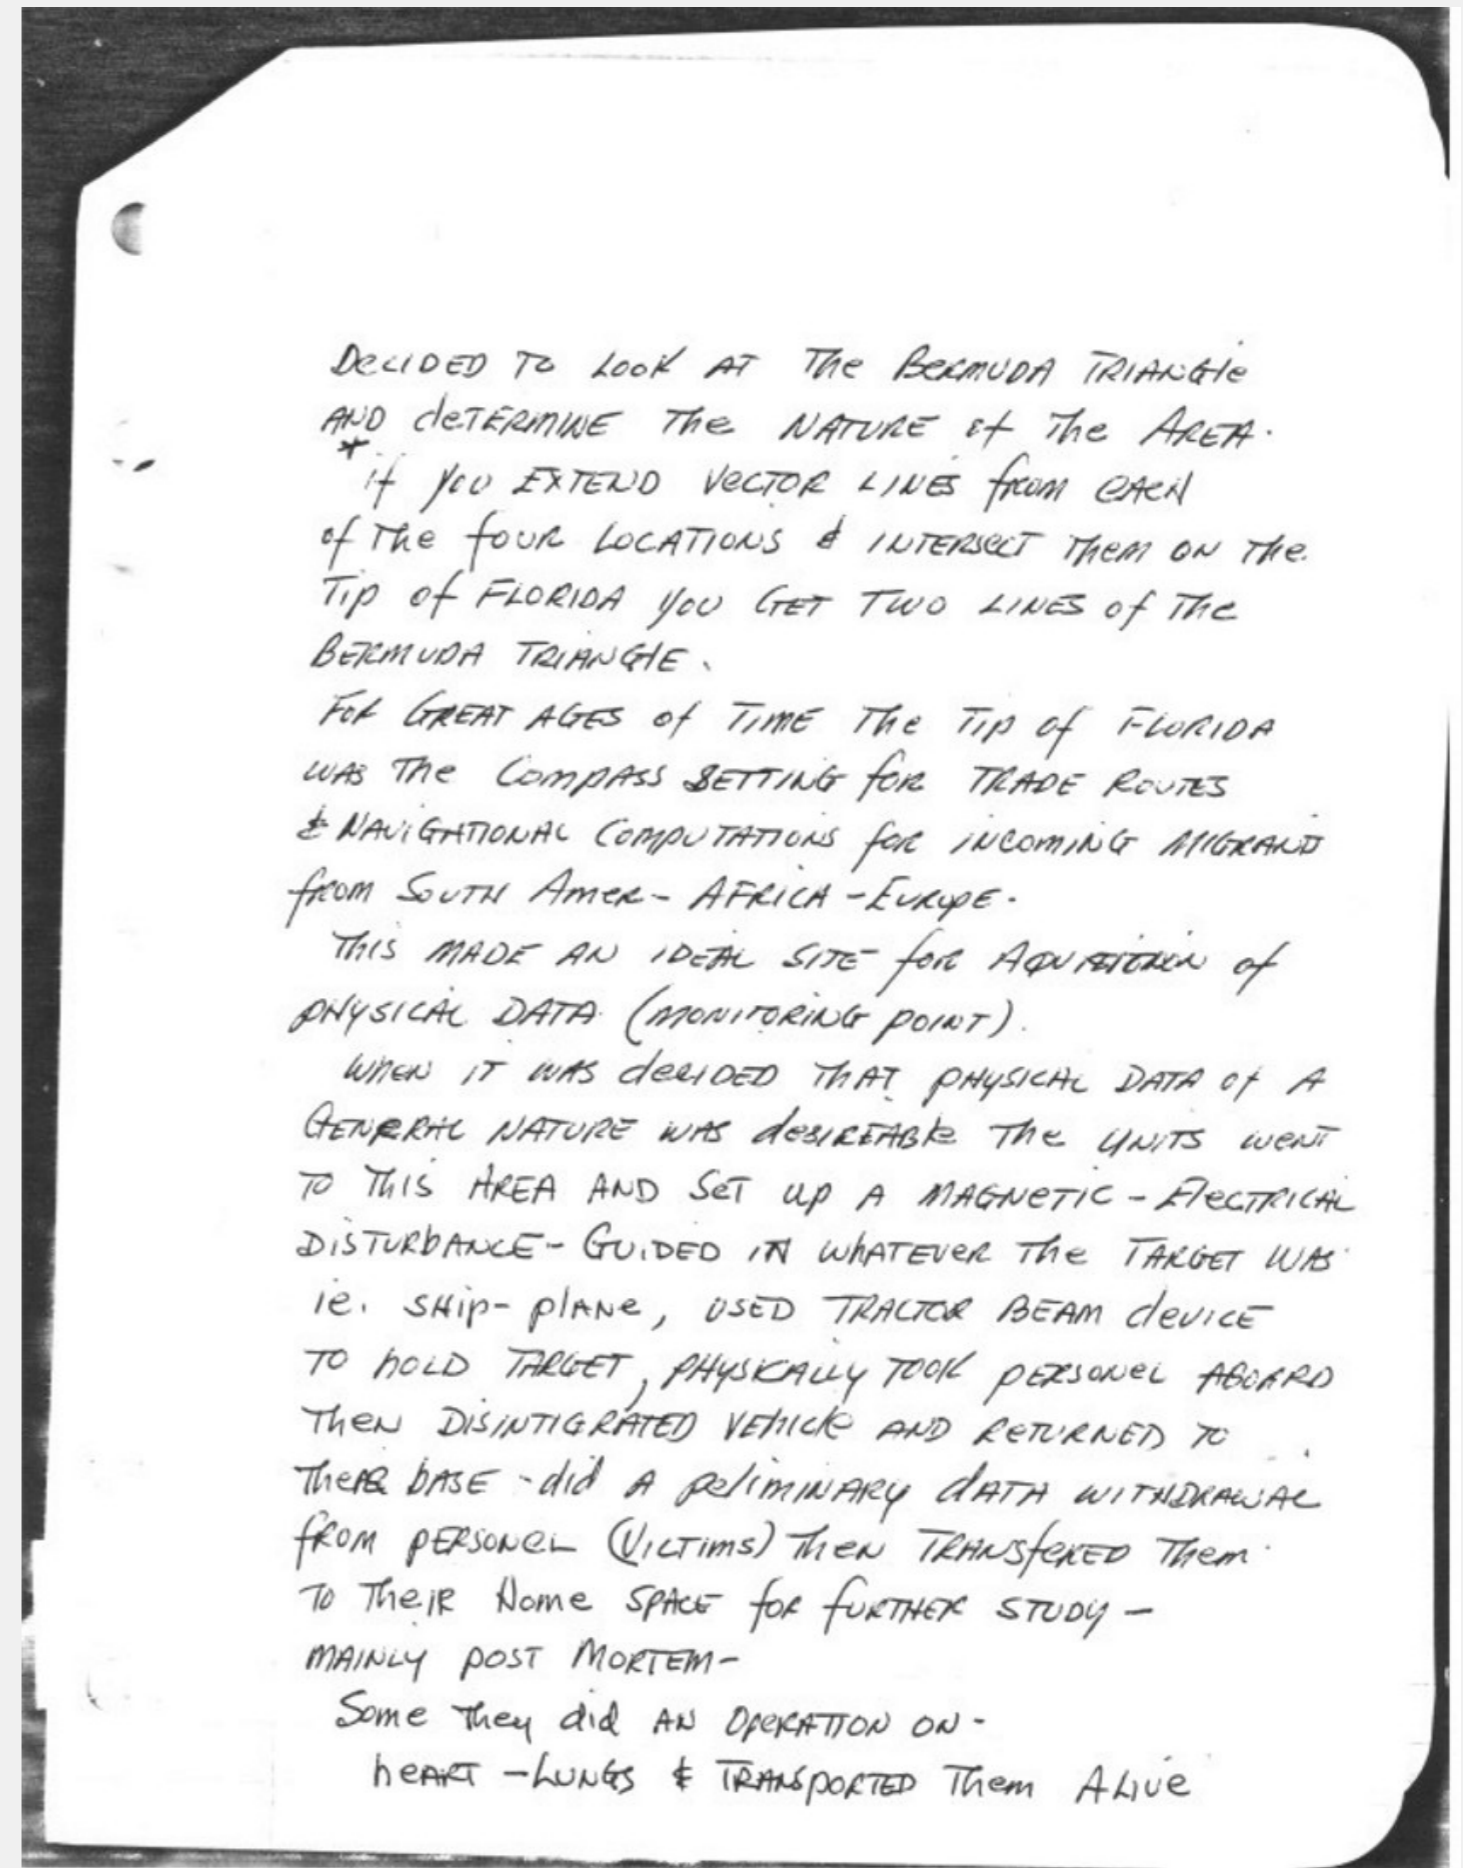 DeCIDED TO LOOK AT The BERMUDA TRIANGle
AND deTERMINE The NATURE of The AREA.
* if you EXTEND VeCTOR LINES from eACH
of The four LOCATIONS & INTERSeCT Them ON The
Tip of FLORIDA you GET TWO LINES of The
BERMUDA TRIANGlE.
FOR GREAT AGES of TIME The Tip of FLORIDA
WAS The COMPASS SETTING for TRADE ROUTES
& NAViGATIONAL COMPUTATIONS for INCOMING MIGRANTS
from SOUTH AmeR - AFRICA - EUROPE.
This MADE AN IDEAL SITE for of
PHYSICAL DATA (MONITORING POINT).
WHEN IT WAS deCIDED THAT PHYSICAL DATA of A
GENERAL NATURE WAS desIREABle The UNITS weNT
TO This AREA AND SeT up A MAGNeTIC - ElecTRICAL
DISTURbANCE - GUIDED IN whATEVER The TARGET WAS
ie. SHip - plANe, USED TRACTOR BEAM deviCE
TO hOLD TARGET, PHYSICALLY TOOK PERSONeL ABOARD
TheN DISINTIGRATED VEhICle AND ReTURNED TO
TheIR bASE - did A peliMINARY dATA WITHDRAWAL
fROM PERSONeL (VICTIMS) TheN TRANSfeRED Them
TO TheIR Home SPACE foR fURTHER STUDY -
MAINLY POST MORTEM -
Some They did AN OpeRATION ON -
heART - LUNGS & TRANSpORTED Them ALive